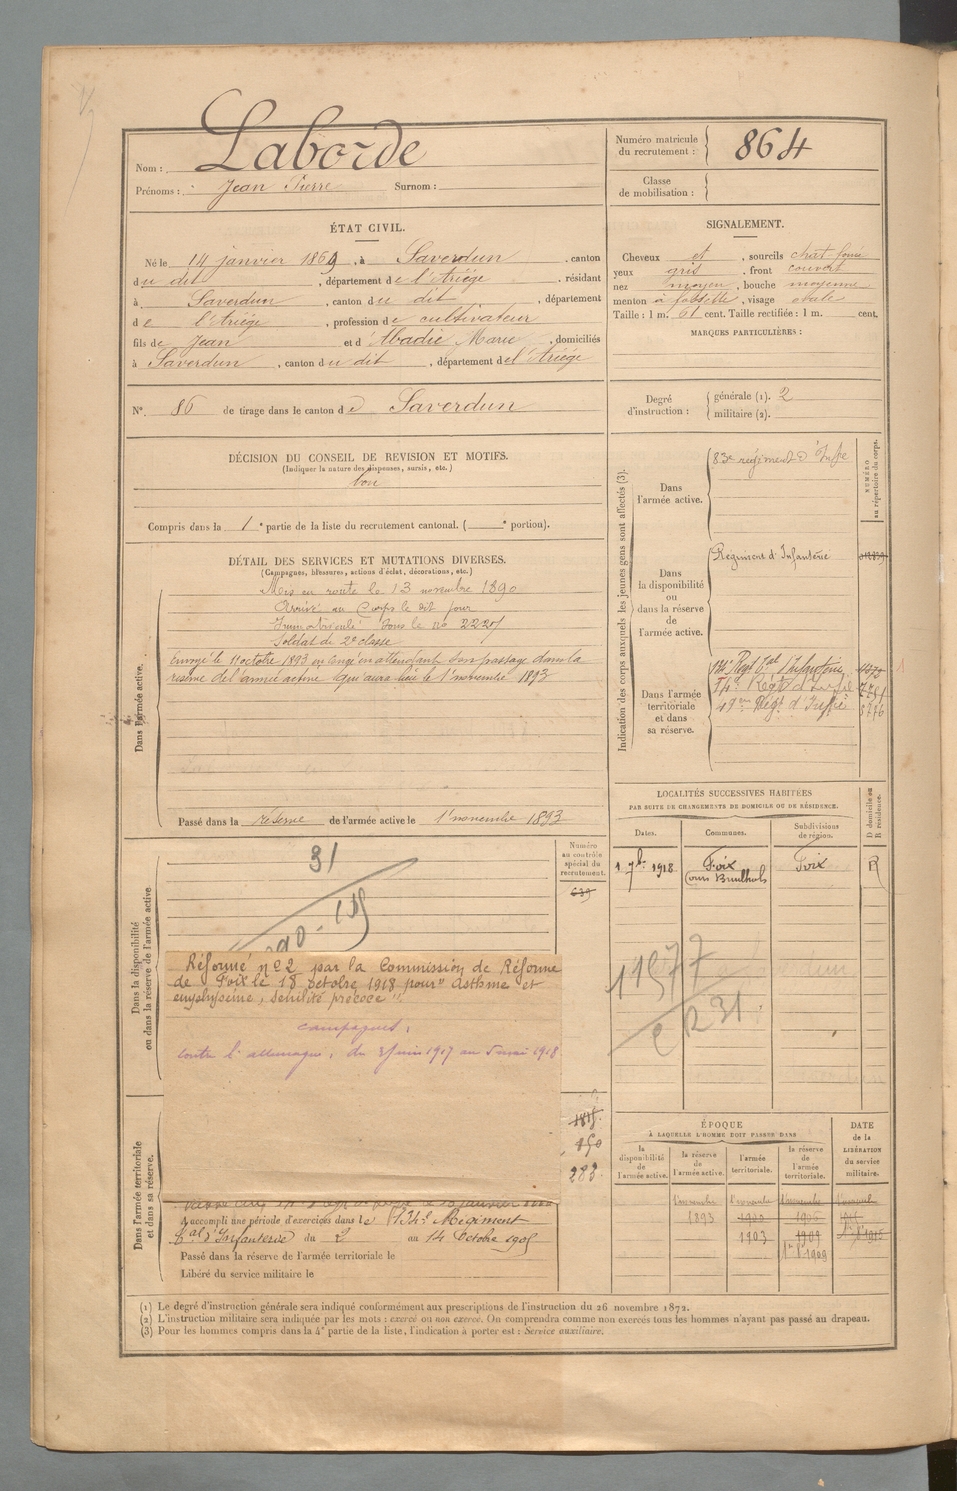 Nom : Laborde
Prénoms : Jean Pierre Surnom :
Numéro matricule du recrutement : 864
Classe de mobilisation :
ÉTAT CIVIL.
Né le 14 janvier 1869, à Saverdun, canton
du dit, département de l'Ariège, résidant
à Saverdun, canton du dit, département
de l'Ariége, profession de cultivateur
fils de Jean et d'Abadie Marie, domiciliés
à Saverdun, canton du dit, département de l'Ariège
SIGNALEMENT.
Cheveux et, sourcils chat. foncé
yeux gris, front couvert
nez moyen, bouche moyenne
menton à fossette, visage ovale
Taille : 1 m. 61 cent. Taille rectifiée : 1 m. cent.
MARQUES PARTICULIÈRES :
N°. 86 de tirage dans le canton de Saverdun
Degré d'instruction :
générale (1). 2
militaire (2).
DÉCISION DU CONSEIL DE REVISION ET MOTIFS.
(Indiquer la nature des dispenses, sursis, etc.)
bon
Compris dans la 1e partie de la liste du recrutement cantonal. ( e portion).
DÉTAIL DES SERVICES ET MUTATIONS DIVERSES.
(Campagnes, blessures, actions d'éclat, décorations, etc.)
Dans l'armée active.
Mis en route le 13 novembre 1890
Arrivé au Corps le dit jour
Immatriculé sous le no
Soldat de 2e classe
Envoyé le 1er octobre 1893 en congé en attendant son passage dans la
réserve de l'armée active qui aura lieu le 1er novembre 1893
Passé dans la réserve de l'armée active le 1er novembre 1893
Indication des corps auxquels les jeunes gens sont affectés (3).
NUMÉRO au répertoire du corps.
Dans l'armée active.
83e régiment d'Infie
Dans la disponibilité ou dans la réserve de l'armée active.
Régiment d'Infanterie
Dans l'armée territoriale et dans sa réserve.
134e Regt tal d'Infanterie
Regt d'Infie
49em Régt d'Infie
LOCALITÉS SUCCESSIVES HABITÉES
PAR SUITE DE CHANGEMENTS DE DOMICILE OU DE RÉSIDENCE.
Dates. Communes. Subdivisions de région. D domicile ou R résidence.
1 7b 1918 Foix Foix R
11577
R231
Dans la disponibilité ou dans la réserve de l'armée active
Numéro au contrôle spécial du recrutement.
31
Réformé no 2 par la Commission de Réforme
de Foix le 18 octobre 1918 pour "Asthme et
emphysème, sénilité précoce".
campagnes,
contre l'allemagne, du 3 juin 1917 au 5 mai 1918
283
Dans l'armée territoriale et dans sa réserve.
A accompli une période d'exercices dans le 134e Régiment
tal d'Infanterie du 2 au 14 Octobre 1905
Passé dans la réserve de l'armée territoriale le
Libéré du service militaire le
ÉPOQUE
À LAQUELLE L'HOMME DOIT PASSER DANS
DATE de la LIBÉRATION du service militaire.
la disponibilité de l'armée active. la réserve de l'armée active. l'armée territoriale. la réserve de l'armée territoriale.
1 novembre 1 novembre 1 novembre
1893 1900 1906
1903 1909
(1) Le degré d'instruction générale sera indiqué conformément aux prescriptions de l'instruction du 26 novembre 1872.
(2) L'instruction militaire sera indiquée par les mots : exercé ou non exercé. On comprendra comme non exercés tous les hommes n'ayant pas passé au drapeau.
(3) Pour les hommes compris dans la 4e partie de la liste, l'indication à porter est : Service auxiliaire.